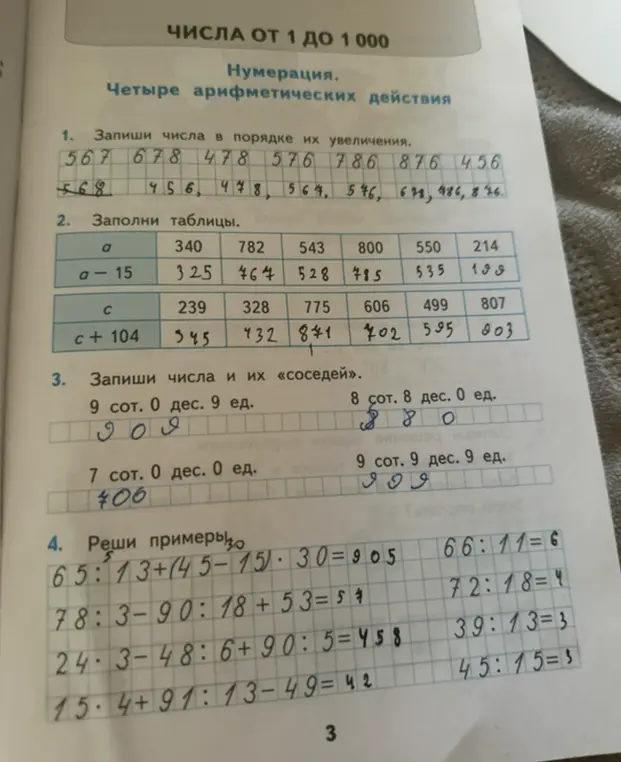 ЧИСЛА ОТ 1 ДО 1 000
Нумерация.
Четыре арифметических действия
1. Запиши числа в порядке их увеличения.
567 678 478 576 786 876 456
568 456, 478, 567, 576, 678, 786, 876
2. Заполни таблицы.
a 340 782 543 800 550 214
a − 15 325 767 528 785 535 199
c 239 328 775 606 499 807
c + 104 345 432 871 702 595 903
3. Запиши числа и их «соседей».
9 сот. 0 дес. 9 ед. 8 сот. 8 дес. 0 ед.
909 880
7 сот. 0 дес. 0 ед. 9 сот. 9 дес. 9 ед.
700 999
4. Реши примеры.
5 30
65 : 13 + (45 − 15) · 30 = 905 66 : 11 = 6
78 : 3 − 90 : 18 + 53 = 57 72 : 18 = 4
24 · 3 − 48 : 6 + 90 : 5 = 458 39 : 13 = 3
15 · 4 + 91 : 13 − 49 = 42 45 : 15 = 3
3